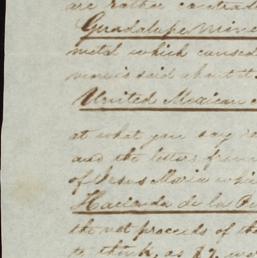 are rather contrad
Guadalupe Mine
metal which caused
more is said about th
United Mexican
at what you say
and the letter from
of Jesus Maria whi
Hacienda de la Pu
the net proceeds of the
to think, as